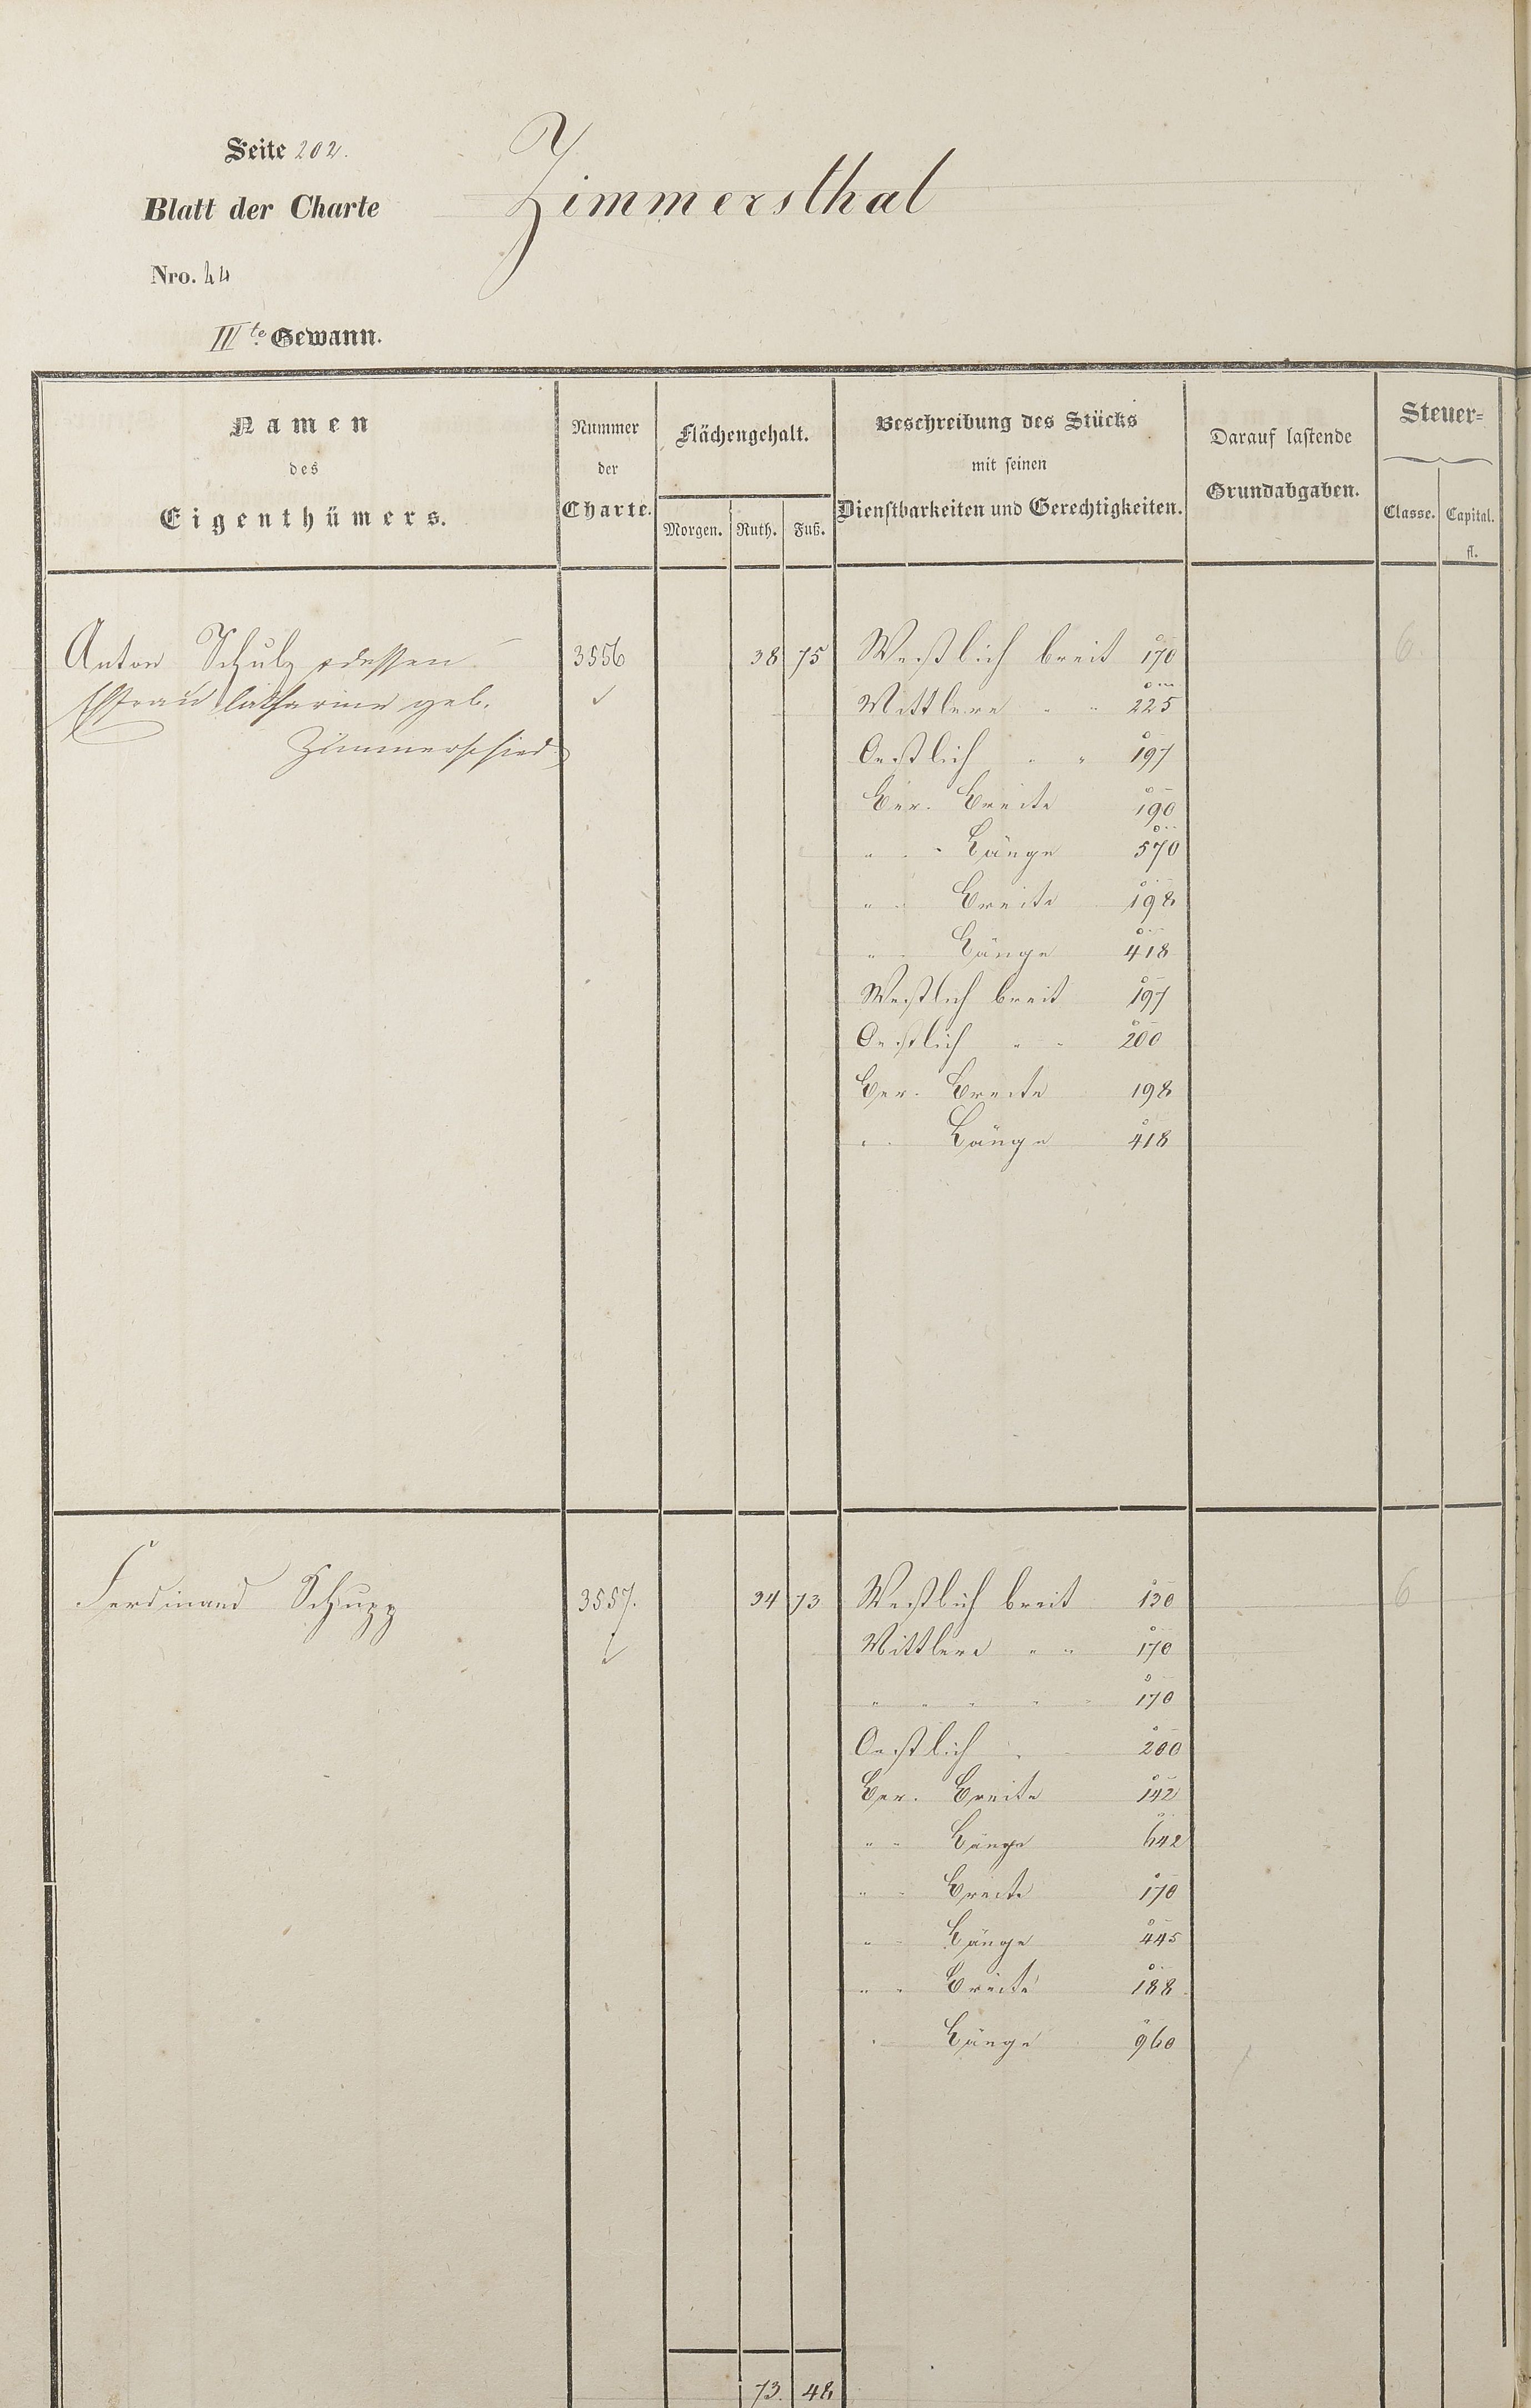 Seite 202.
Blatt der Charte
Zimmersthal
Nro. 44
IIte Gewann.
Namen
des
Eigenthümers.
Nummer
der
Charte.
Flächengehalt.
Morgen. Ruth. Fuß.
Beschreibung des Stücks
mit seinen
Dienstbarkeiten und Gerechtigkeiten.
Darauf lastende
Grundabgaben.
Steuer-
Classe. Capital.
fl.
Anton Schulz & dessen 3556 38 75 Westlich breit 170 6.
Ehfrau Catharine geb. Mittlere " " 225
Zimmerschied Oestlich " " 197
Ber. Breite 190
" " Länge 570
" " Breite 198
" " Länge 418
Westlich breit 197
Oestlich " " 200
Ber. Breite 198
" " Länge 418
Ferdinand Schupp 3557. 34 73 Westlich breit 130 6
Mittlere " " 170
" " " " " 170
Oestlich " 200
Ber. Breite 142
" " Länge 642
" " Breite 170
" " Länge 445
" " Breite 188
" Länge 960
73. 48